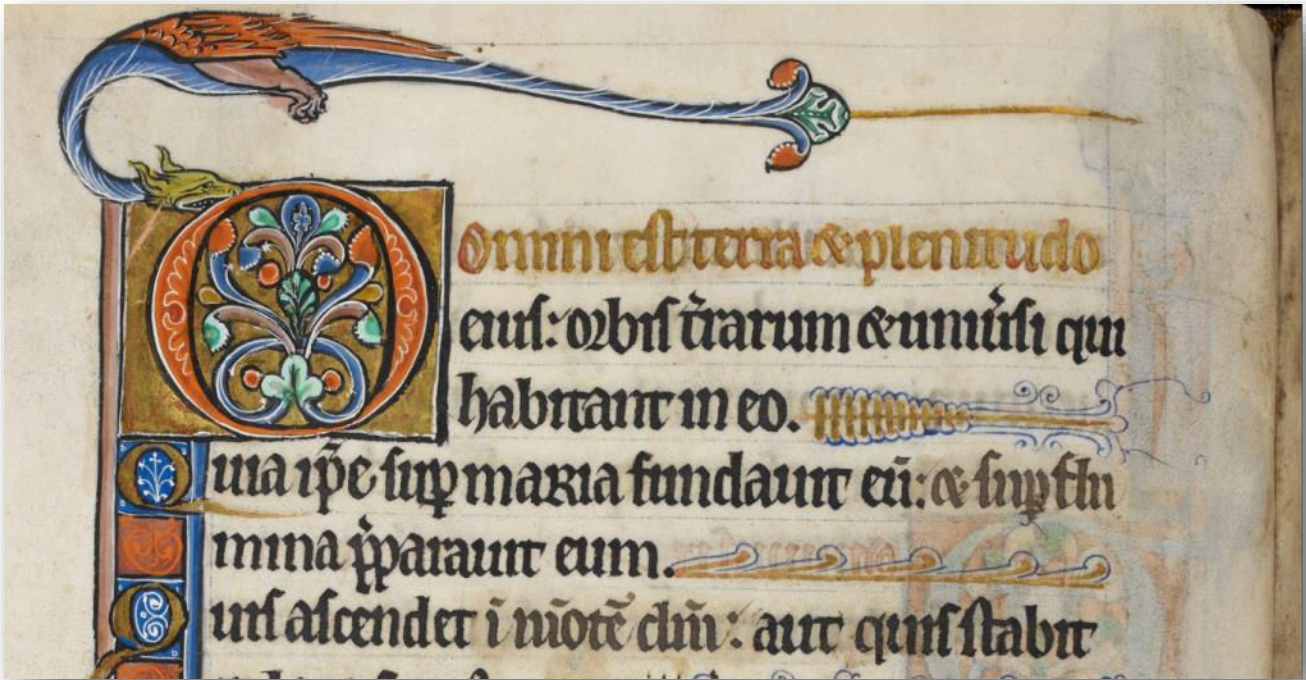 Domini est terra & plenitudo
eius: orbis t̾rarum & uniu̾si qui
habitant in eo.
Quia ip̄e sup̱ maria fundauit eū: & sup̱ flu
mina p̾parauit eum.
Quis ascendet ī mōtē dn̄i: aut quis stabit